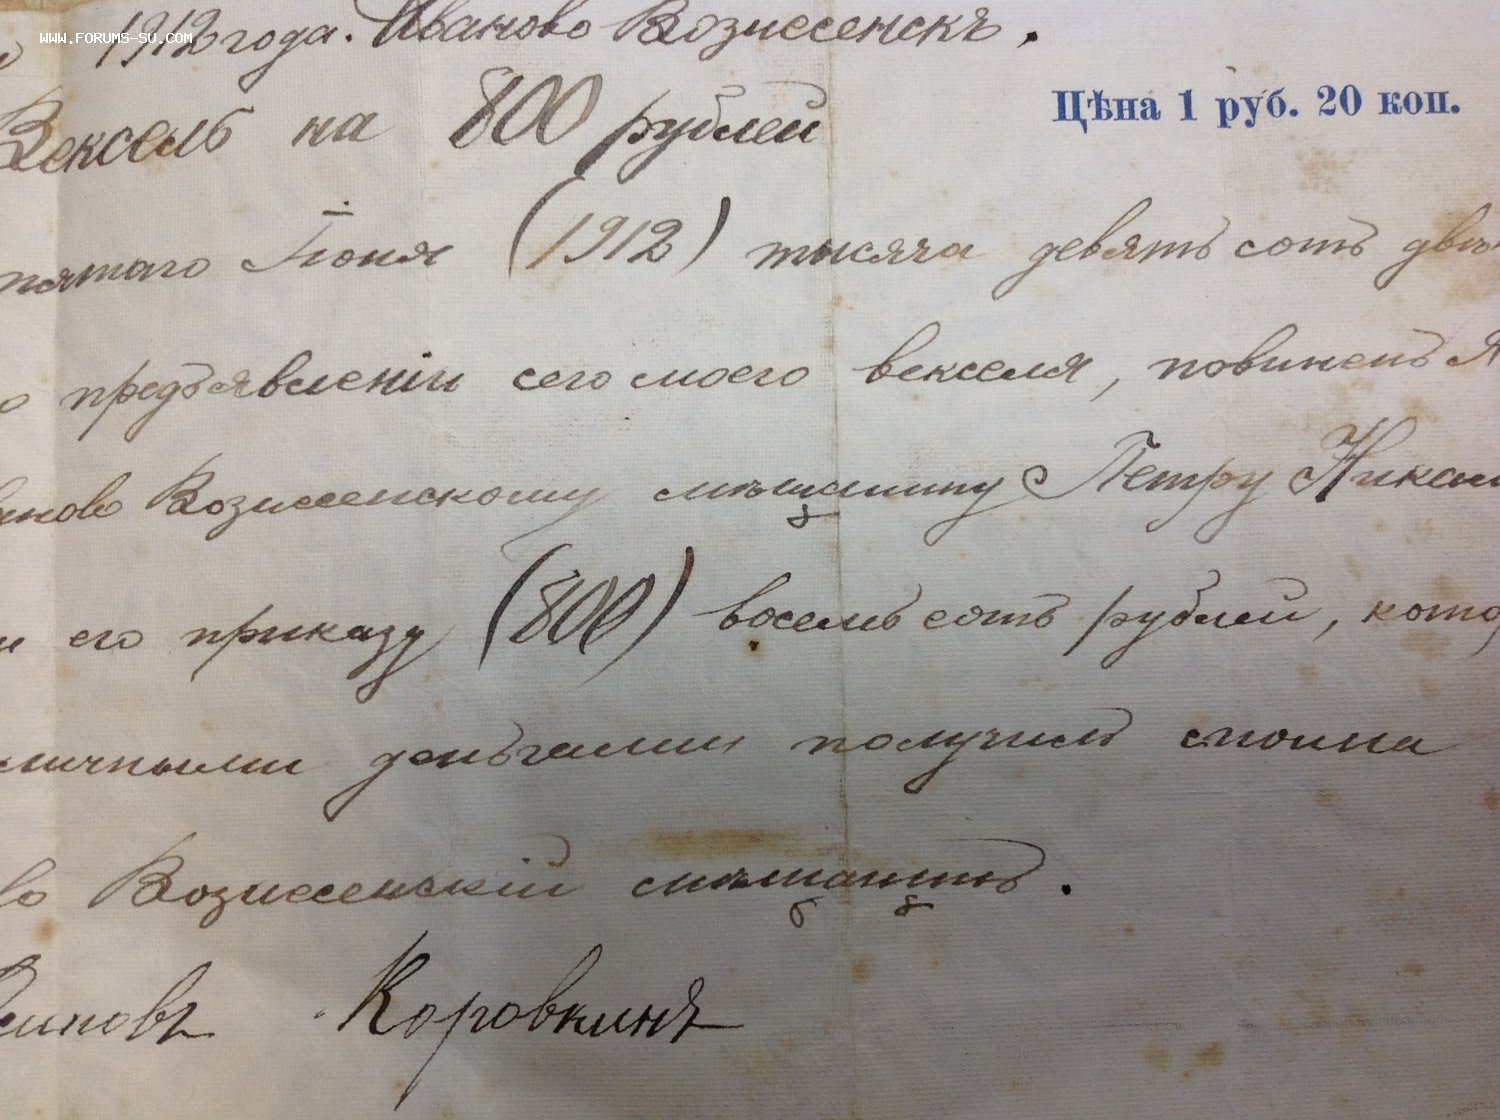 WWW.FORUMS-SU.COM
1912 года. Иваново Вознесенскъ.
Цѣна 1 руб. 20 коп.
Вексель на 800 рублей
пятаго Іюня (1912) тысяча девятьсотъ двѣ
предъявленіи сего моего векселя, повиненъ я
аново Вознесенскому мѣщанину Петру Никан
и его приказу (800) восемьсотъ рублей, котор
личными деньгами получилъ сполна
во Вознесенскій мѣщанинъ.
Коровкинъ